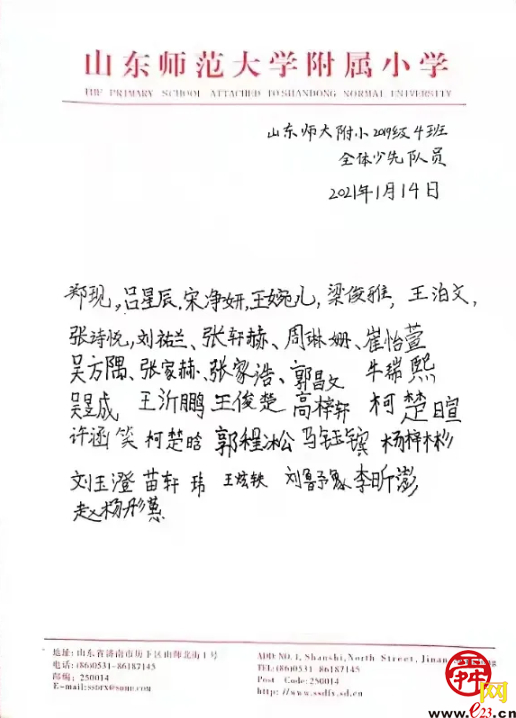 山东师范大学附属小学
THE PRIMARY SCHOOL ATTACHED TO SHANDONG NORMAL UNIVERSITY
山东师大附小2019级4班
全体少先队员
2021年1月14日
郑现,吕星辰.宋净妍,王婉儿,梁俊雅,王泊文,
张诗悦,刘祐兰、张轩赫、周琳姗、崔怡萱
吴方隅、张家赫、张家浩、郭昌文 牛瑞熙
吴昱成 王沂鹏 王俊楚 高梓轩 柯楚暄
许涵笑 柯楚晗 郭程凇 马钰镔 杨梓彬
刘玉澄 苗轩玮 王铉轶 刘鲁予 李昕澎
赵杨彤蕙
地址:山东省济南市历下区山师北街1号
电话:(86)0531-86187145
邮编:250014
E-mail:ssdfx@sohu.com
ADD:NO.1, Shanshi,North Street, Jinan
TEL:(86)0531-86187145
Post Code:250014
http://www.ssdfx.sd.cn
舜网
www.e23.cn